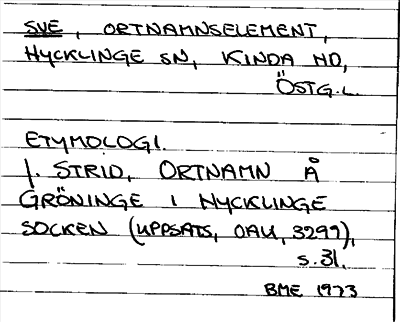 SVE, ORTNAMNSELEMENT,
HYCKLINGE SN, KINDA HD,
ÖSTG.L.
ETYMOLOGI.
J. STRID, ORTNAMN Å
GRÖNINGE I HYCKLINGE
SOCKEN (UPPSATS, OAU, 3299),
s. 31.
BME 1973